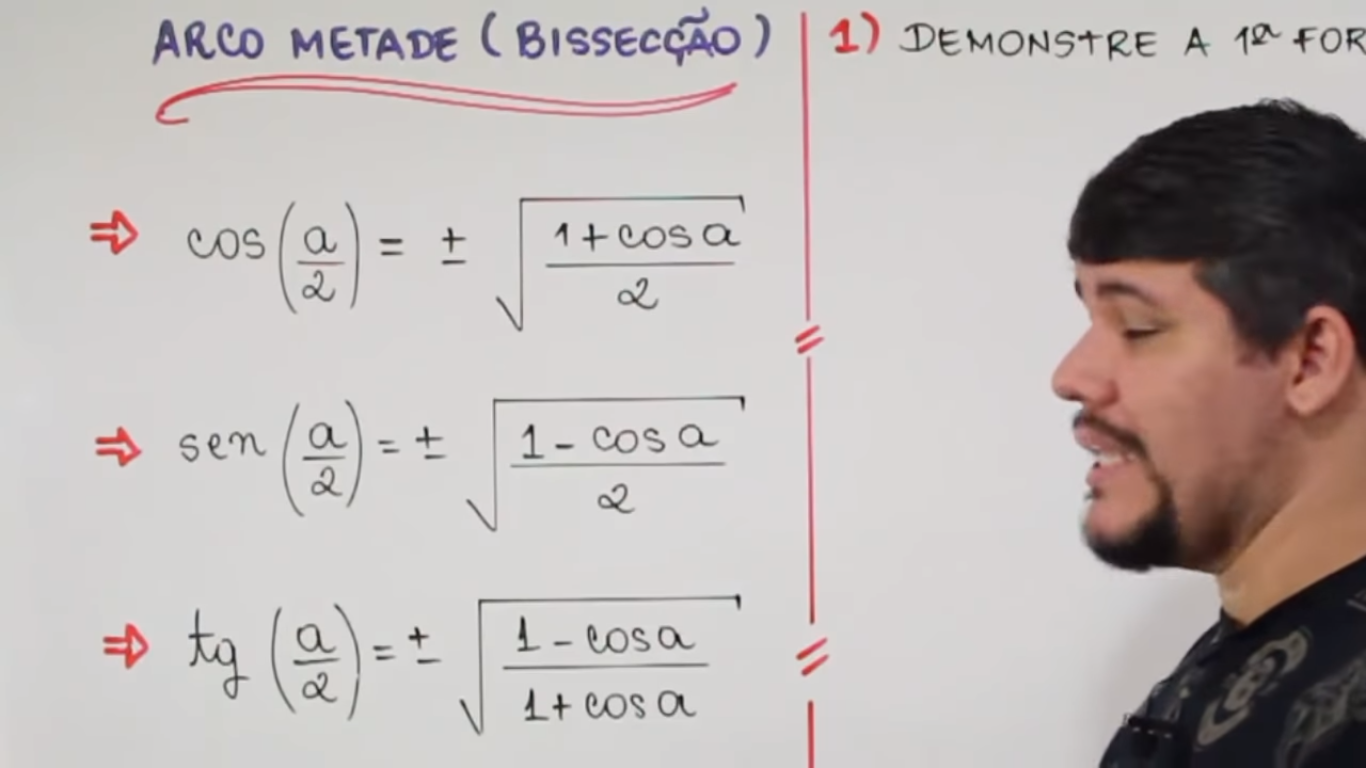 ARCO METADE (BISSECÇÃO)
⇒ cos(a/2) = ± √((1+cos a)/2)
⇒ sen(a/2) = ± √((1-cos a)/2)
⇒ tg(a/2) = ± √((1-cos a)/(1+cos a))
1) DEMONSTRE A 1ª FOR